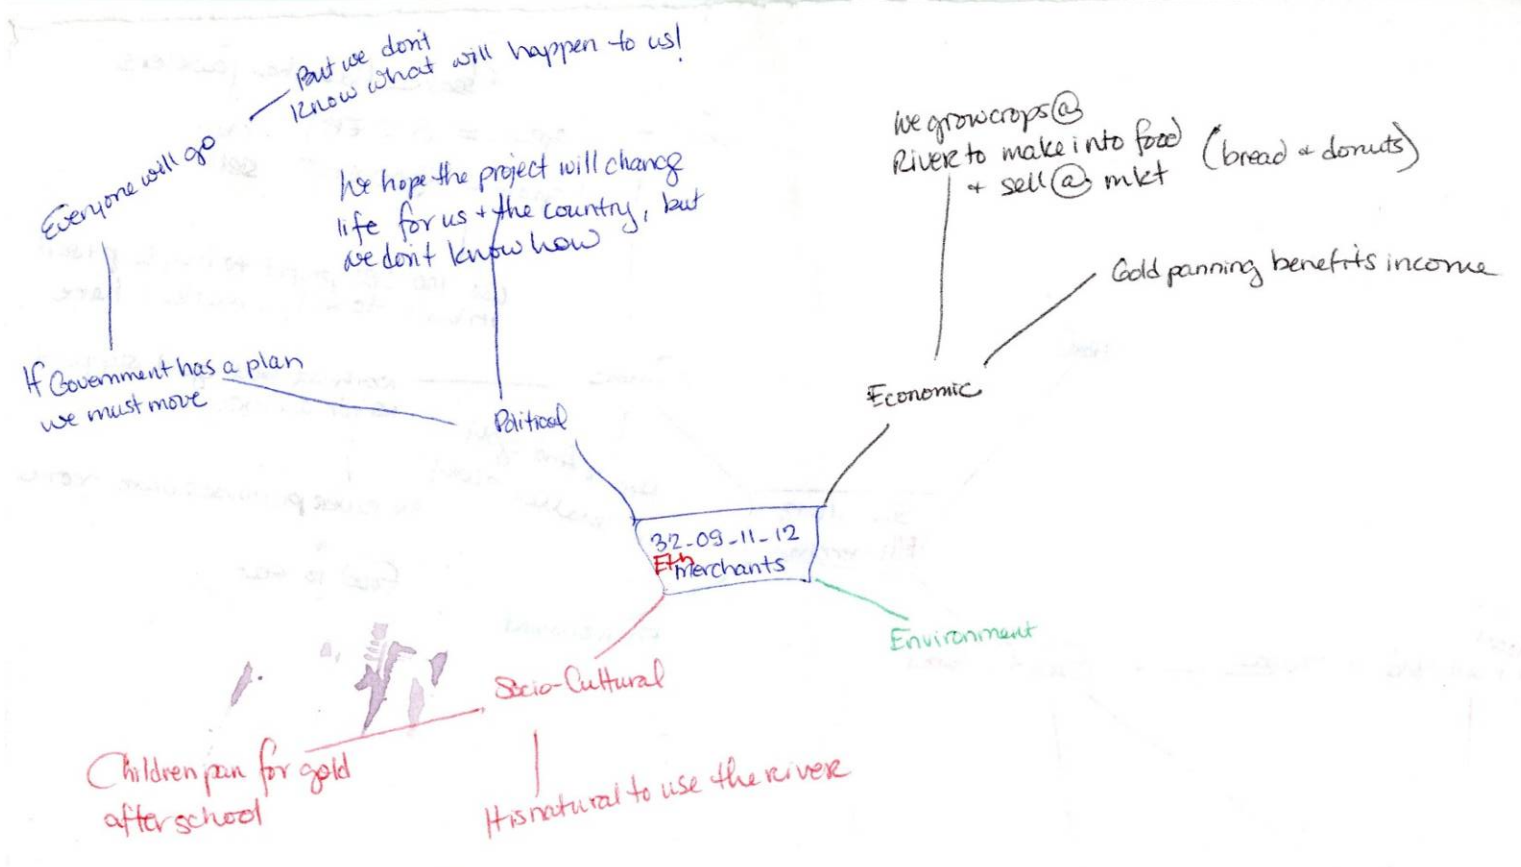 But we don't
Know what will happen to us!
Everyone will go
We hope the project will change
life for us + the country, but
we don't know how
If Government has a plan
we must move
Political
We grow crops @
River to make into food (bread + donuts)
+ sell @ mkt
Gold panning benefits income
Economic
32-09-11-12
Eth
Merchants
Environment
Socio-Cultural
Children pan for gold
after school
It is natural to use the river